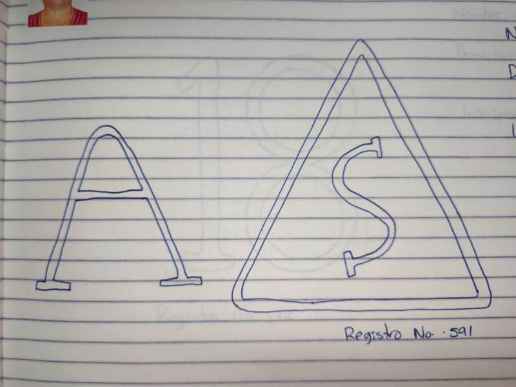 A S
Registro No. 591